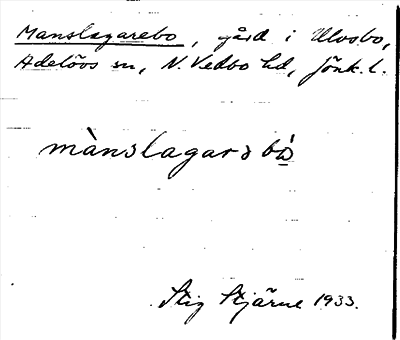 Manslagarebo, gård i Ulvsbo,
Adelövs sn, N. Vedbo hd, Jönk. l.
mànslagarə bò
Stig Stjärne 1933.